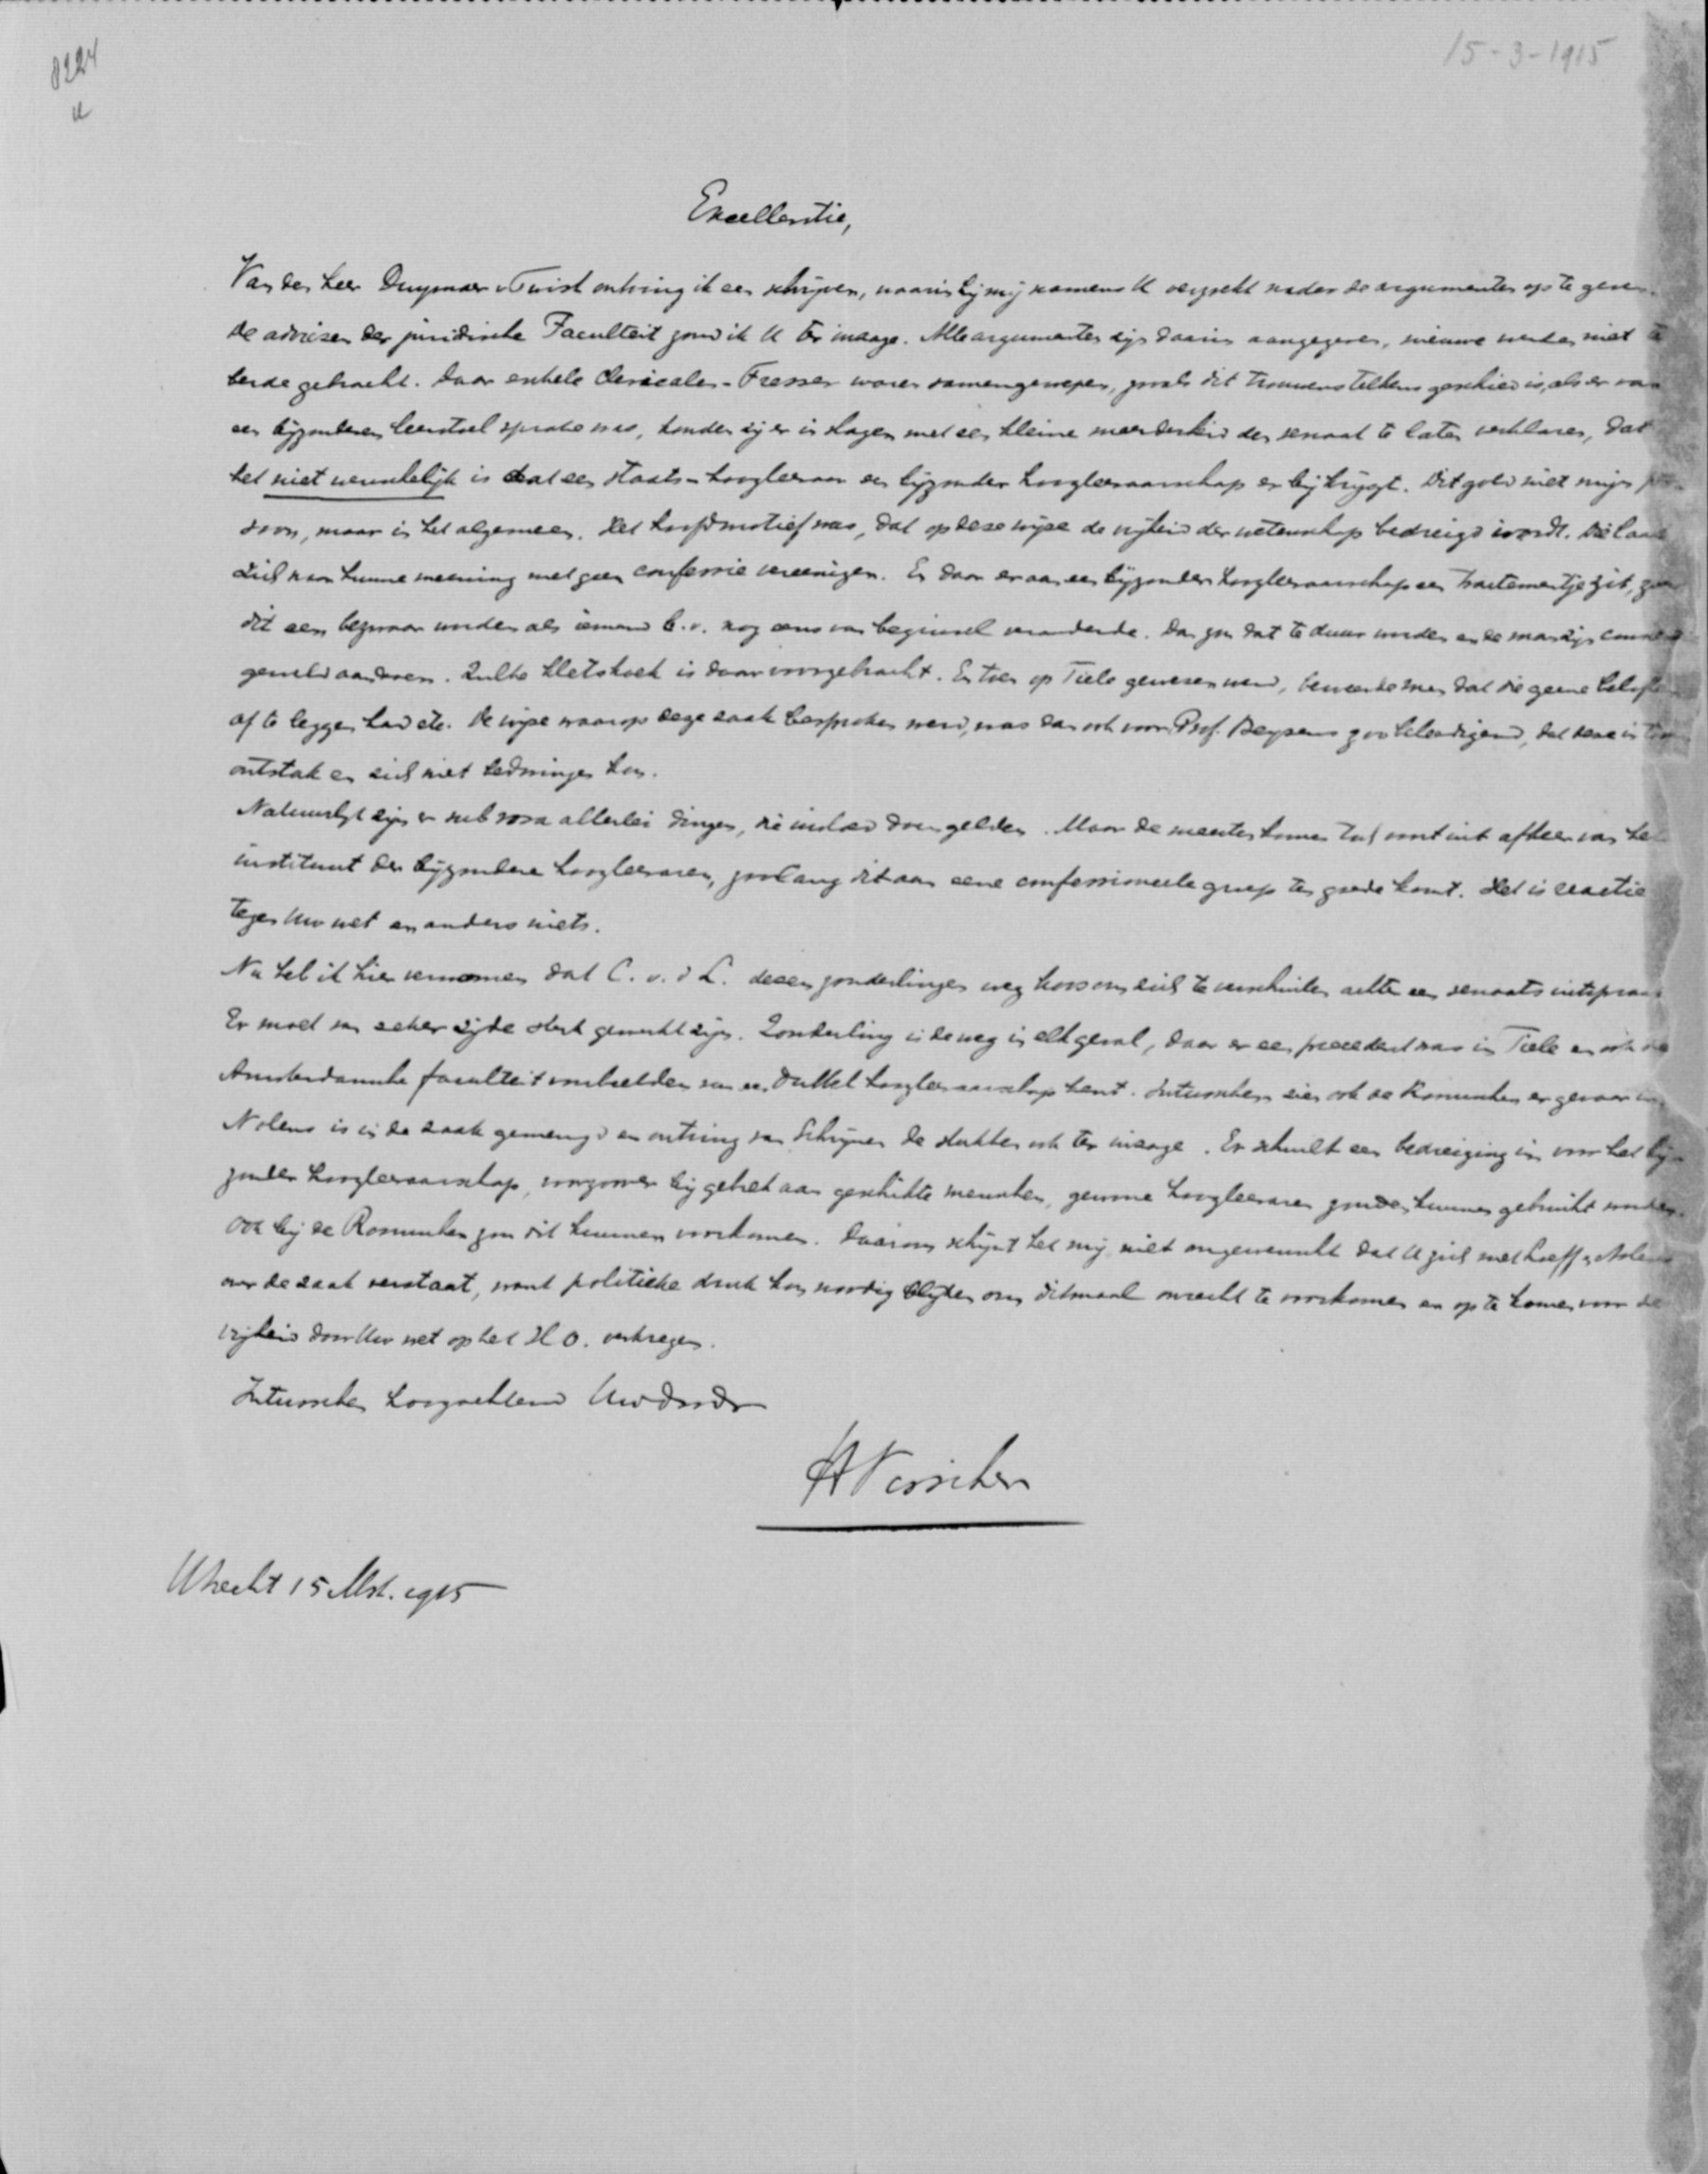 8224
15-3-1915
Excellentie,
Van den heer Duymaer v Twist ontving ik een schrijven, waarin hij mij namens U verzoekt nader de argumenten op te geven.
De adviezen der juridische Faculteit zond ik U ter inzage. Alle argumenten zijn daarin aangegeven, nieuwe werden niet te
berde gebracht. Daar enkele Clericalen-Fresser waren samengeroepen, zooals dit trouwens telkens geschied is, als er van
een bijzonderen leerstoel sprake was, konden zij er in slagen met een kleine meerderheid den senaat te laten verklaren, dat
het niet wenschelijk is dat een Staats-hoogleeraar een bijzonder hoogleeraarschap er bij krijgt. Dit gold niet mijn per-
soon, maar in het algemeen. Het hoofdmotief was, dat op deze wijze de vrijheid der wetenschap bedreigd wordt. Die laat
zich naar hunne meening met geen confessie vereenigen. En daar er aan een bijzonder hoogleeraarschap een tractementje zit, zou
dit een bezwaar worden als iemand b.v. nog eens van beginsel veranderde. Dan zou dat te duur worden en de man zijn
geweld aandoen. Zulke kletskoek is daar voorgebracht. En toen op Tiele gewezen werd, bemerkte men dat die geene belofte
af te leggen had etc. De wijze waarop deze zaak besproken werd, was dan ook voor Prof. Beysens zoo beleedigend, dat deze in toorn
ontstak en zich niet bedwingen kon.
Natuurlijk zijn er sub rosa allerlei dingen, die invloed doen gelden. Maar de meesten komen toch voort uit afkeer van het
instituut der bijzondere hoogleeraren, zoolang dit aan eene confessioneele groep ten goede komt. Het is reactie
tegen Uw wet en anders niets.
Nu heb ik hier vernomen dat C. v. d L. dezen zonderlingen weg koos om zich te verschuilen achter een senaats uitspraak
Er moet van zeker zijde sterk gewerkt zijn. Zonderling is de weg in elk geval, daar er een precedent was in Tiele en ook de
Amsterdamsche faculteit voorbeelden van een dubbel hoogleeraarschap kent. Intusschen zien ook de Roomschen er gevaar in.
Nolens is in de zaak gemengd en ontving van Schrijnen de stukken ook ter inzage. Er schuilt een bedreiging in voor het bij-
zonder hoogleeraarschap, voorzoover bij gebrek aan geschikte menschen, gewone hoogleeraren zouden kunnen gebruikt worden.
Ook bij de Roomschen zou dit kunnen voorkomen. Daarom schijnt het mij niet ongewenscht dat U zich met Loeff & Nolens
over de zaak verstaat, want politieke druk kon noodig blijken om ditmaal onrecht te voorkomen en op te komen voor de
vrijheid door Uw wet op het H O. verkregen.
Intusschen hoogachtend Uw dw dr
H Visscher
Utrecht 15 Mrt. 1915